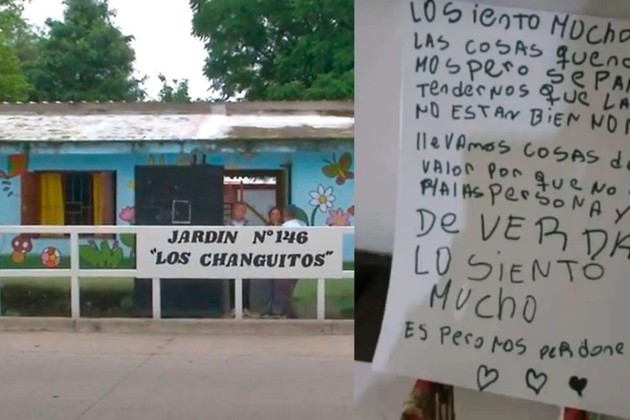 JARDIN N°146
"LOS CHANGUITOS"
LO SIENTO MUCHO
LAS COSAS
MOS PERO SE PA
TENDERNOS QUE LA
NO ESTAN BIEN NO
llevAMOS COSAS de
VALOR POR QUE NO
PERSONA Y
De VERDA
LO SIENTO
MUCHO
ES PERO NOS PERDONE